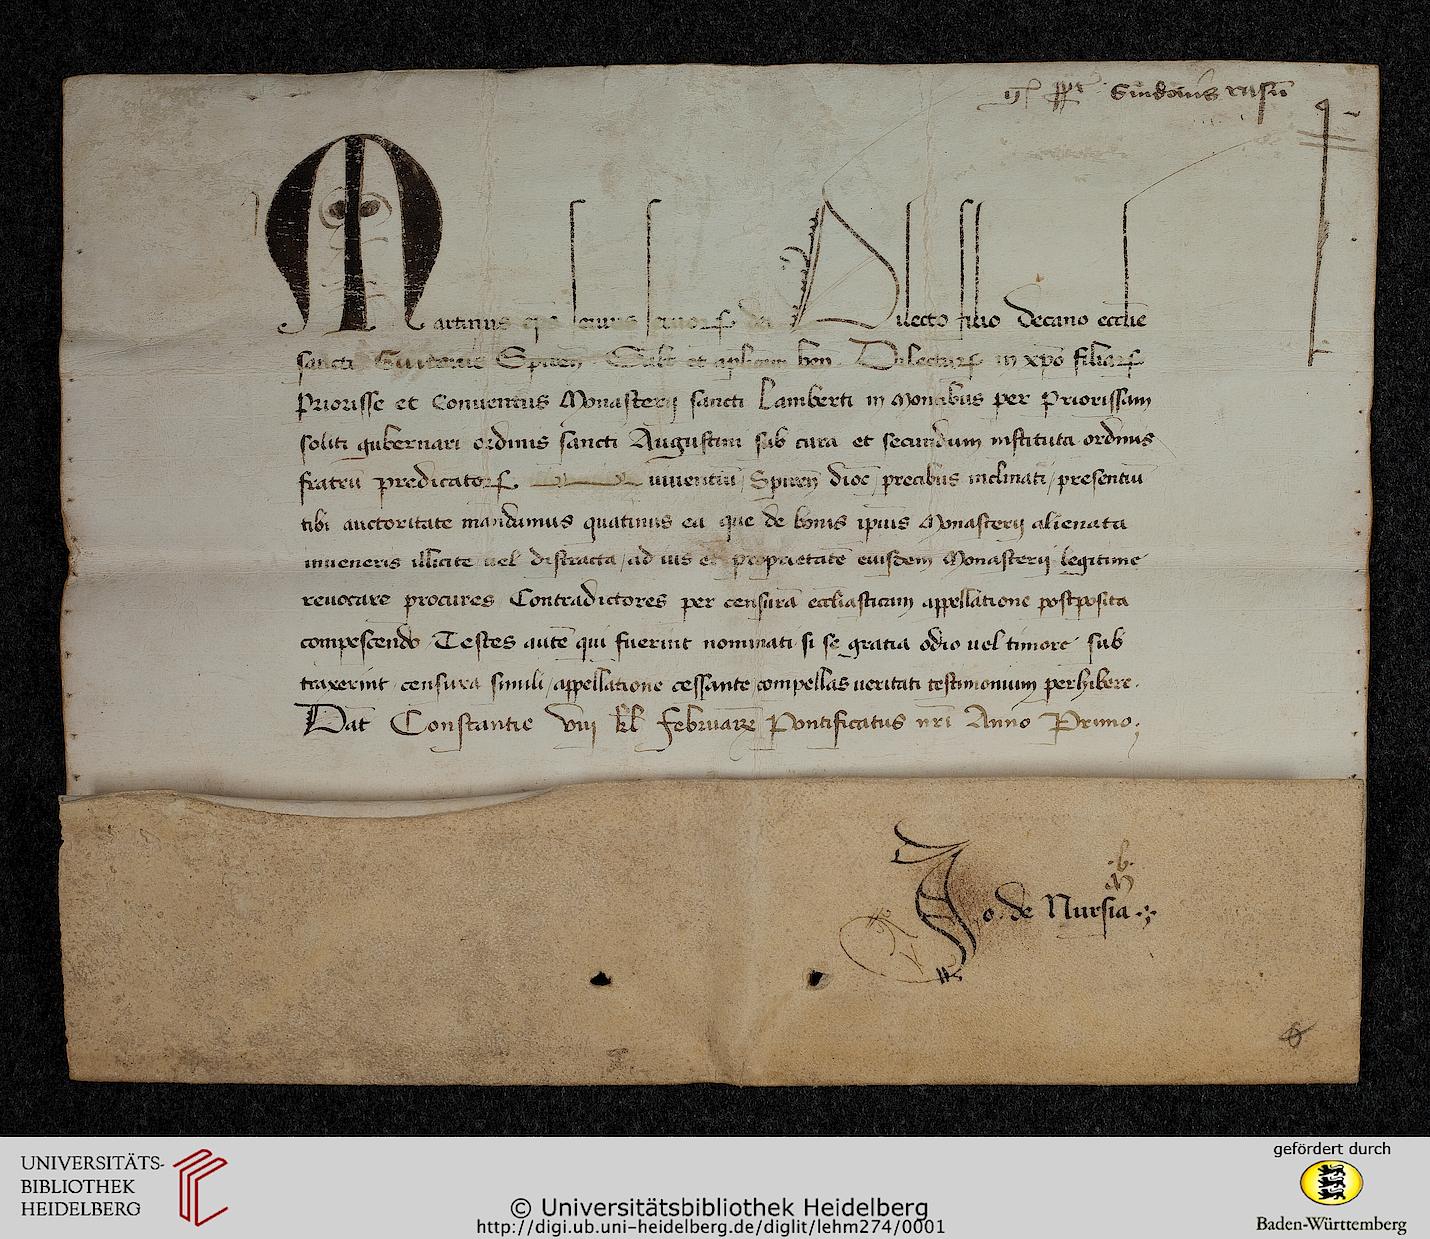 Guidonis rasū
Martinus ep̄s seruus seruorꝝ dei Dilecto filio Decano ecclīe
sancti Guidonis Spiren̄ Salt̄ et aplicam ben̄ Dilectarꝝ in xp̄o filiarꝝ
Priorisse et Conuentus Monasterij sancti Lamberti in Montibus per Priorissam
soliti gubernari ordinis sancti Augustini sub cura et secundum instituta ordinis
fratrū predicatorꝝ uiuentiū / Spiren̄ dioc̄ / precibus inclinati / presentiū
tibi auctoritate mandamus quatinus ea que de bonis ipius Monasterij alienata
inueneris illicite uel distracta / ad ius et proprietatē eiusdem Monasterij legitime
reuocare procures Contradictores per censurā ecclīasticam appellatione postposita
compescendo Testes autē qui fuerint nominati si se gratia odio uel timore sub
traxerint censura simili / appellatione cessante compellas ueritati testimonium perhibere.
Dat̄ Constantie viii kl̄ februarii Pontificatus nr̄i Anno Primo
.b.
Jo. de Nursia
UNIVERSITÄTS-
BIBLIOTHEK
HEIDELBERG
© Universitätsbibliothek Heidelberg
http://digi.ub.uni-heidelberg.de/diglit/lehm274/0001
gefördert durch
Baden-Württemberg